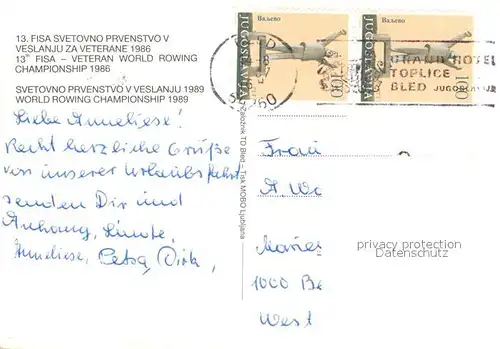 13. FISA SVETOVNO PRVENSTVO V
VESLANJU ZA VETERANE 1986
13th FISA – VETERAN WORLD ROWING
CHAMPIONSHIP 1986
SVETOVNO PRVENSTVO V VESLANJU 1989
WORLD ROWING CHAMPIONSHIP 1989
Liebe Anneliese!
Recht herzliche Grüße
von unserer Urlaubsfahrt
senden Dir und
Anhang,
Anneliese, Petra, Dirk,
Založnik TD Bled – Tisk MOBO Ljubljana
Ваљево
JUGOSLAVIJA
Ваљево
JUGOSLAVIJA
GRAND HOTEL
TOPLICE
BLED JUGOSLAVIJA
Frau
A. Wo
1000 Be
West
privacy protection
Datenschutz